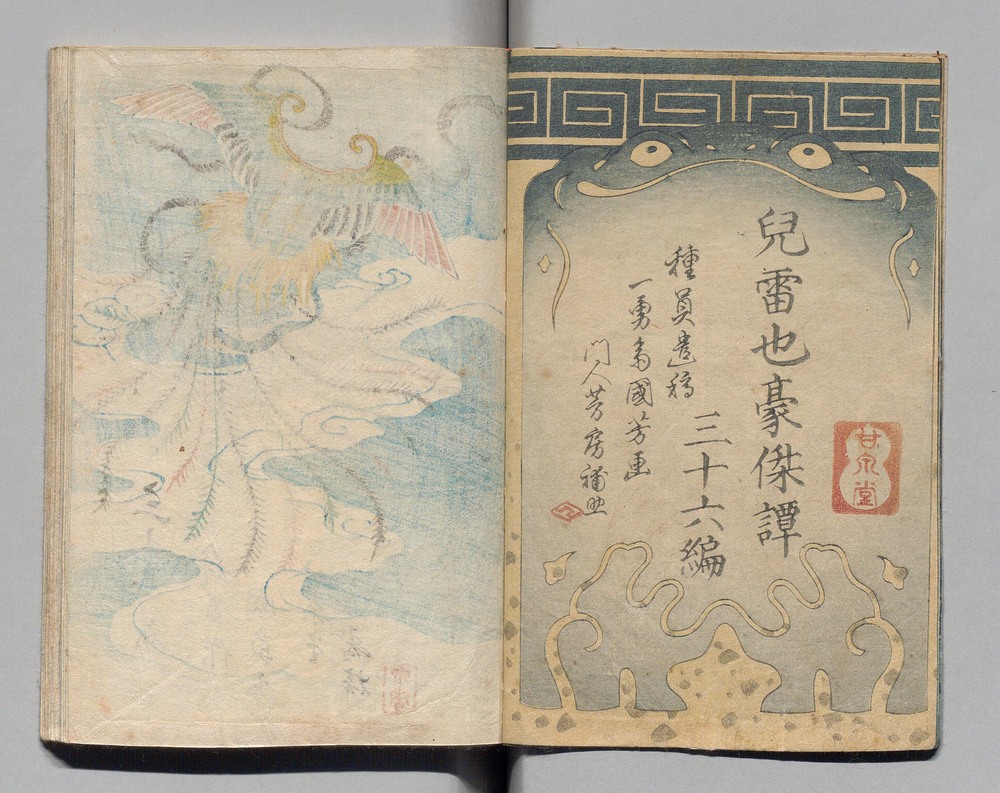 甘泉堂
兒雷也豪傑譚
三十六編
種員遺稿
一勇斎國芳画
門人芳房補助